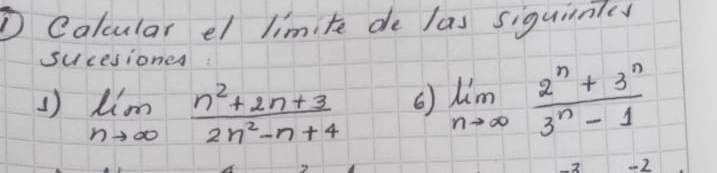 1) Calcular el límite de las siguiintes
sucesiones:
1) lím n→∞ (n² + 2n + 3)/(2n² - n + 4)
6) lím n→∞ (2ⁿ + 3ⁿ)/(3ⁿ - 1)
-3 -2